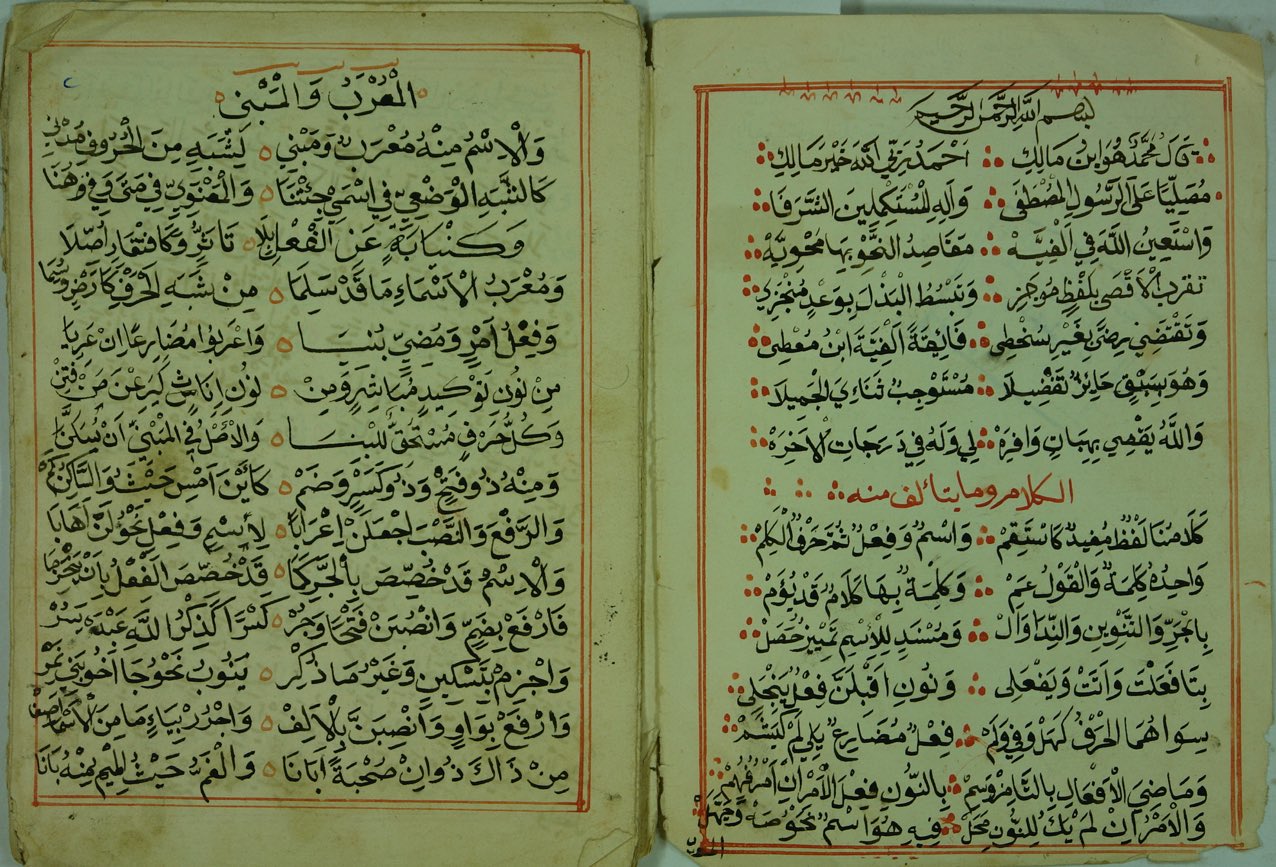 بسم الله الرحمن الرحيم
قَالَ مُحَمَّدٌ هُوَ ابْنُ مَالِكِ اَحْمَدُ رَبِّي اللهَ خَيْرَ مَالِكِ
مُصَلِّيًا عَلَى الرَّسُولِ الْمُصْطَفَى وَآلِهِ الْمُسْتَكْمِلِينَ الشَّرَفَا
وَاسْتَعِينُ اللهَ فِي اَلْفِيَّهْ مَقَاصِدُ النَّحْوِ بِهَا مَحْوِيَّهْ
تقرب الْاَقْصَى بِلَفْظٍ مُوجَزِ وَتَبْسُطُ الْبَذْلَ بِوَعْدٍ مُنْجَزِ
وَتَقْتَضِي رِضًى بِغَيْرِ سُخْطِ فَايِقَةً اَلْفِيَّةَ ابْنِ مُعْطِي
وَهُوَ بِسَبْقٍ حَايِزٌ تَفْضِيلَا مُسْتَوْجِبٌ ثَنَاءِيَ الْجَمِيلَا
وَاللهُ يَقْضِي بِهِبَاتٍ وَافِرَهْ لِي وَلَهُ فِي دَرَجَاتِ الْاَخِرَهْ
الكلام وما يتألف منه
كَلَامُنَا لَفْظٌ مُفِيدٌ كَاسْتَقِمْ وَاسْمٌ وَفِعْلٌ ثُمَّ حَرْفٌ الْكَلِمْ
وَاحِدُهُ كَلِمَةٌ وَالْقَوْلُ عَمْ وَكَلِمَةٌ بِهَا كَلَامٌ قَدْ يُؤَمْ
بِالْجَرِّ وَالتَّنْوِينِ وَالنِّدَا وَالْ وَمُسْنَدٍ لِلْاِسْمِ تَمْيِيزٌ حَصَلْ
بِتَا فَعَلْتَ وَاَتَتْ وَيَفْعَلِي وَنُونِ اَقْبِلَنَّ فِعْلٌ يَنْجَلِي
سِوَاهُمَا الْحَرْفُ كَهَلْ وَفِي وَلَمْ فِعْلٌ مُضَارِعٌ يَلِي لَمْ كَيَشَمْ
وَمَاضِيَ الْاَفْعَالِ بِالتَّا مِزْ وَسِمْ بِالنُّونِ فِعْلَ الْاَمْرِ اِنْ اَمْرٌ فُهِمْ
وَالْاَمْرُ اِنْ لَمْ يَكُ لِلنُّونِ مَحَلْ فِيهِ هُوَ اسْمٌ نَحْوُ صَهْ وَحَيَّهَلْ
المعرب
الْمُعْرَبُ وَالْمَبْنِي
وَالْاِسْمُ مِنْهُ مُعْرَبٌ وَمَبْنِي لِشَبَهٍ مِنَ الْحُرُوفِ مُدْنِي
كَالشَّبَهِ الْوَضْعِيِّ فِي اسْمَيْ جِئْتَنَا وَالْمَعْنَوِيِّ فِي مَتَى وَفِي هُنَا
وَكَنِيَابَةٍ عَنِ الْفِعْلِ بِلَا تَاَثُّرٍ وَكَافْتِقَارٍ اُصِّلَا
وَمُعْرَبُ الْاَسْمَاءِ مَا قَدْ سَلِمَا مِنْ شَبَهِ الْحَرْفِ كَاَرْضٍ وَسُمَا
وَفِعْلُ اَمْرٍ وَمُضِيٍّ بُنِيَا وَاَعْرَبُوا مُضَارِعًا اِنْ عَرِيَا
مِنْ نُونِ تَوْكِيدٍ مُبَاشِرٍ وَمِنْ نُونِ اِنَاثٍ كَيَرُعْنَ مَنْ فُتِنْ
وَكُلُّ حَرْفٍ مُسْتَحِقٌّ لِلْبِنَا وَالْاَصْلُ فِي الْمَبْنِيِّ اَنْ يُسَكَّنَا
وَمِنْهُ ذُو فَتْحٍ وَذُو كَسْرٍ وَضَمْ كَاَيْنَ اَمْسِ حَيْثُ وَالسَّاكِنُ كَمْ
وَالرَّفْعَ وَالنَّصْبَ اجْعَلَنْ اِعْرَابًا لِاسْمٍ وَفِعْلٍ نَحْوُ لَنْ اَهَابَا
وَالْاِسْمُ قَدْ خُصِّصَ بِالْجَرِّ كَمَا قَدْ خُصِّصَ الْفِعْلُ بِاَنْ يَنْجَزِمَا
فَارْفَعْ بِضَمٍّ وَانْصِبَنْ فَتْحًا وَجُرْ كَسْرًا كَذِكْرُ اللهِ عَبْدَهُ يَسُرْ
وَاجْزِمْ بِتَسْكِينٍ وَغَيْرُ مَا ذُكِرْ يَنُوبُ نَحْوُ جَا اَخُو بَنِي نَمِرْ
وَارْفَعْ بِوَاوٍ وَانْصِبَنَّ بِالْاَلِفْ وَاجْرُرْ بِيَاءٍ مَا مِنَ الْاَسْمَا اَصِفْ
مِنْ ذَاكَ ذُو اِنْ صُحْبَةً اَبَانَا وَالْفَمُ حَيْثُ الْمِيمُ مِنْهُ بَانَا